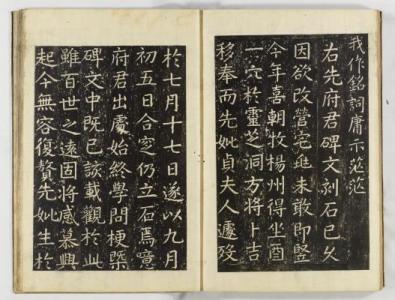 我作銘詞庸示茫茫
右先府君碑文刻石已久
因欲改營宅兆未敢即竪
今年喜朝牧楊州得坐酉
一穴於靈芝洞方將卜吉
移奉而先妣貞夫人遽歿
於七月十七日遂以九月
初五日合窆仍立石焉噫
府君出處始終學問梗槩
碑文中既已該載觀於此
雖百世之遠固將感慕興
起今無容復贅先妣生於